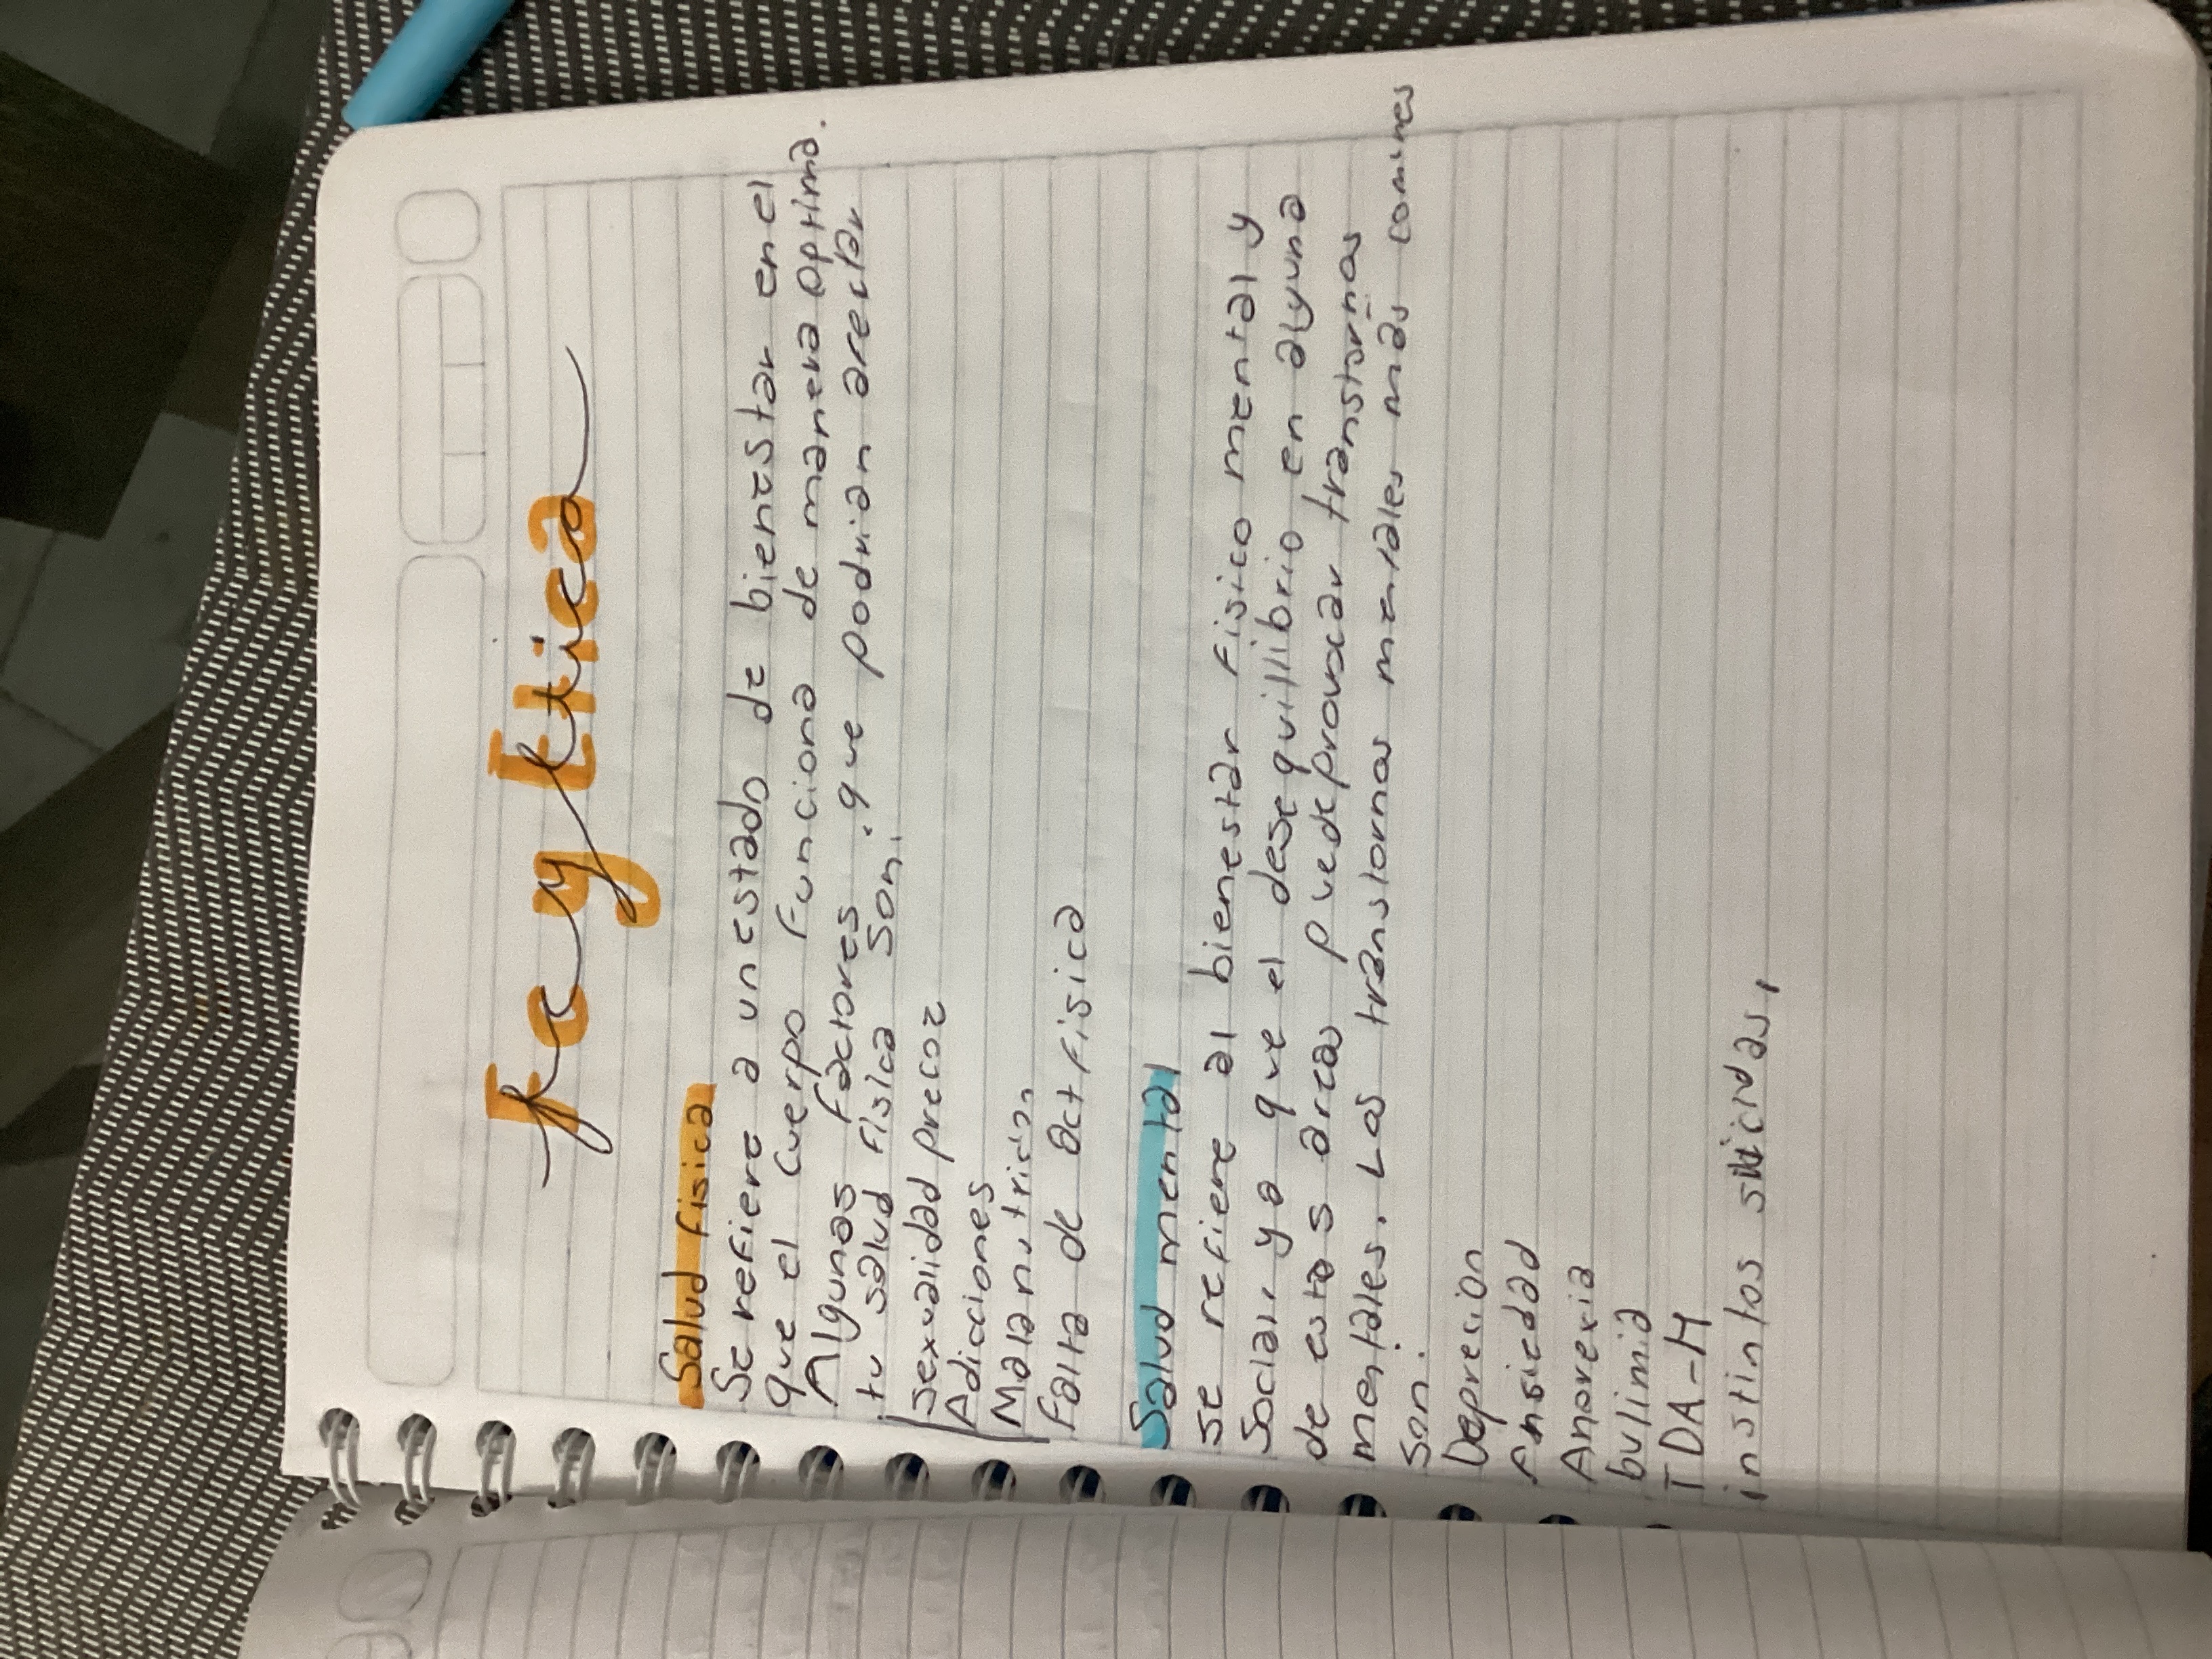 fcy Etica
Salud Fisica
Se refiere a un estado de bienestar en el
que el cuerpo Funciona de manera optima.
Algunos Factores que podrian afectar
tu salud Fisica son:
Sexualidad precoz
Adicciones
Mala nutrición
Falta de act Fisica
Salud mental
se refiere al bienestar Fisico mental y
Social, ya que el desequillibrio en alguna
de estas areas puede provocar transtornos
mentales. Los transtornos mentales más comunes
son:
Depresion
Ansiedad
Anorexia
bulimia
TDA-H
instintos suicidas,